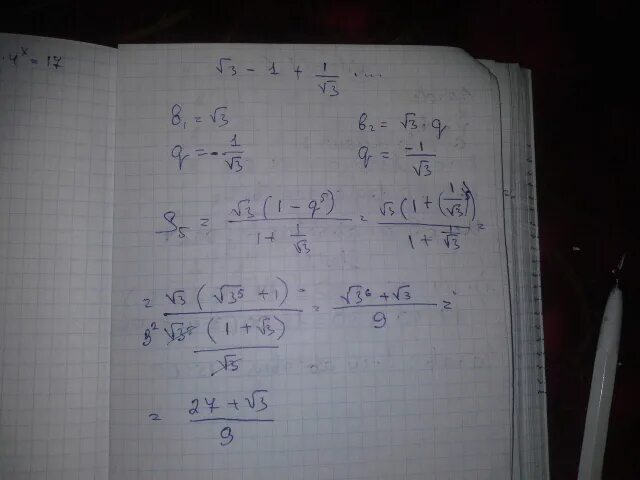 ·4^x = 17
√3 − 1 + 1/√3 ....
b₁ = √3
b₂ = √3 · q
q = −1/√3
q = −1/√3
S₅ = √3 (1 − q⁵) / (1 + 1/√3) = √3 (1 + (1/√3)⁵) / (1 + 1/√3) =
= √3 (√3⁵ + 1) / (9² √3⁵ (1 + √3)/√3) = (√3⁶ + √3) / 9 =
= (27 + √3) / 9